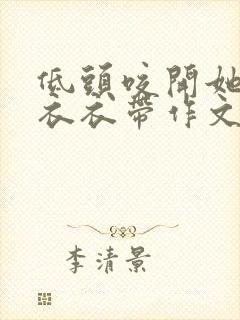 低頭咬開她
衣衣帶作文
李清景